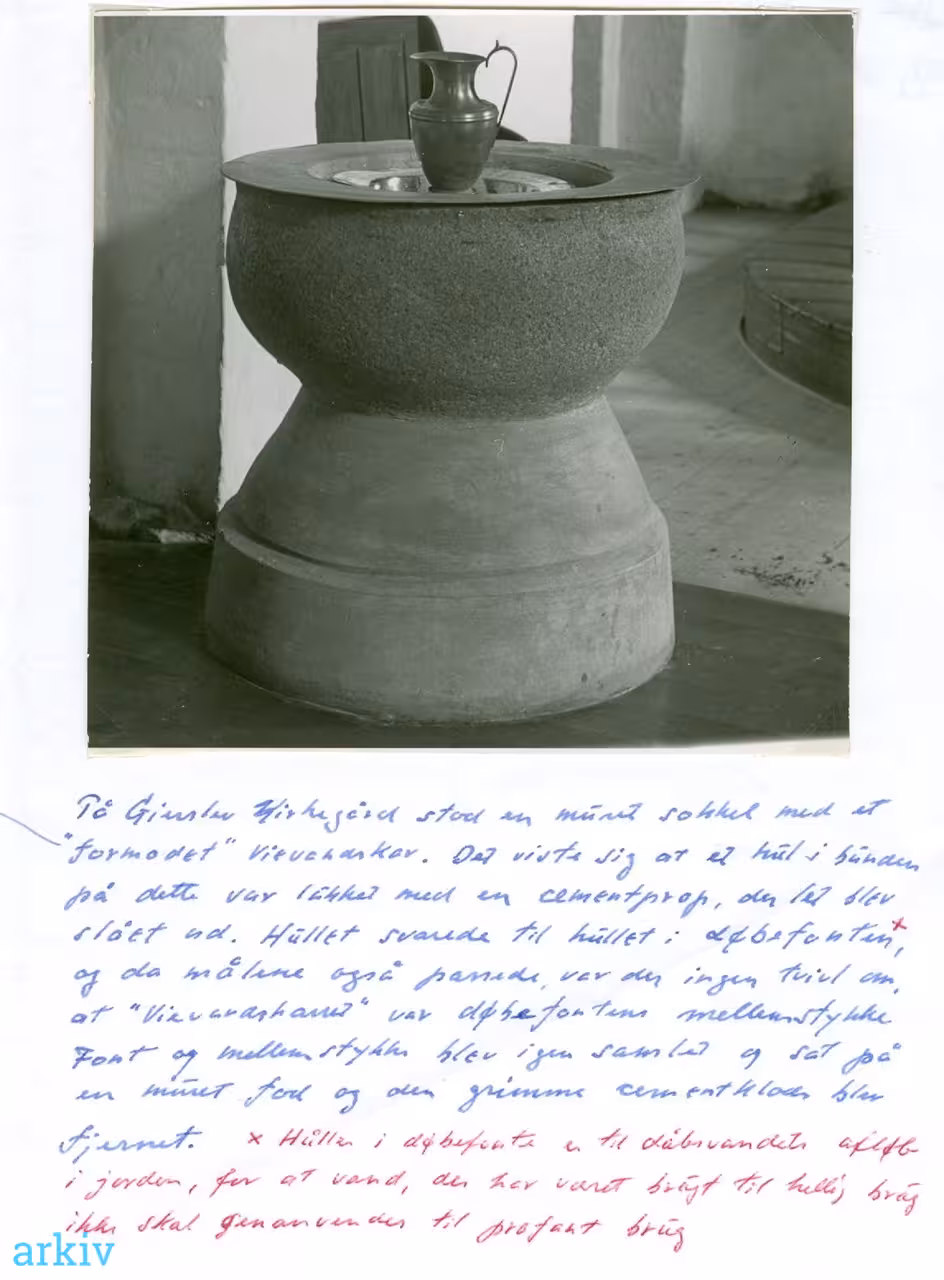 På Gierslev Kirkegård stod en muret sokkel med et
"formodet" Vievandskar. Det viste sig at et hul i bunden
på dette var lukket med en cementprop, der let blev
slået ud. Hullet svarede til hullet i døbefonten,x
og da målene også passede, var der ingen tvivl om,
at "Vievandskarret" var døbefontens mellemstykke
Font og mellemstykke blev igen samlet og sat på
en muret fod og den grimme cementklods blev
fjernet. x Hullet i døbefonte er til dåbsvandets afløb
i jorden, for at vand, der har været brugt til hellig brug
ikke skal genanvendes til profant brug
arkiv